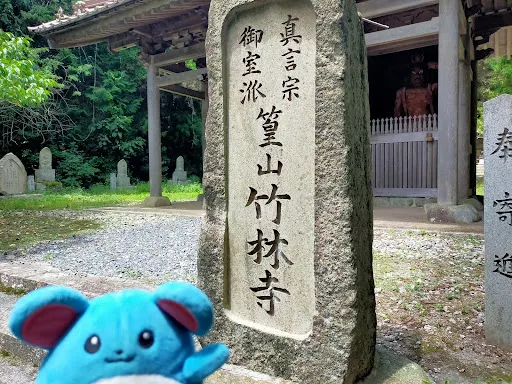 真言宗
御室派
篁山竹林寺
奉寄進